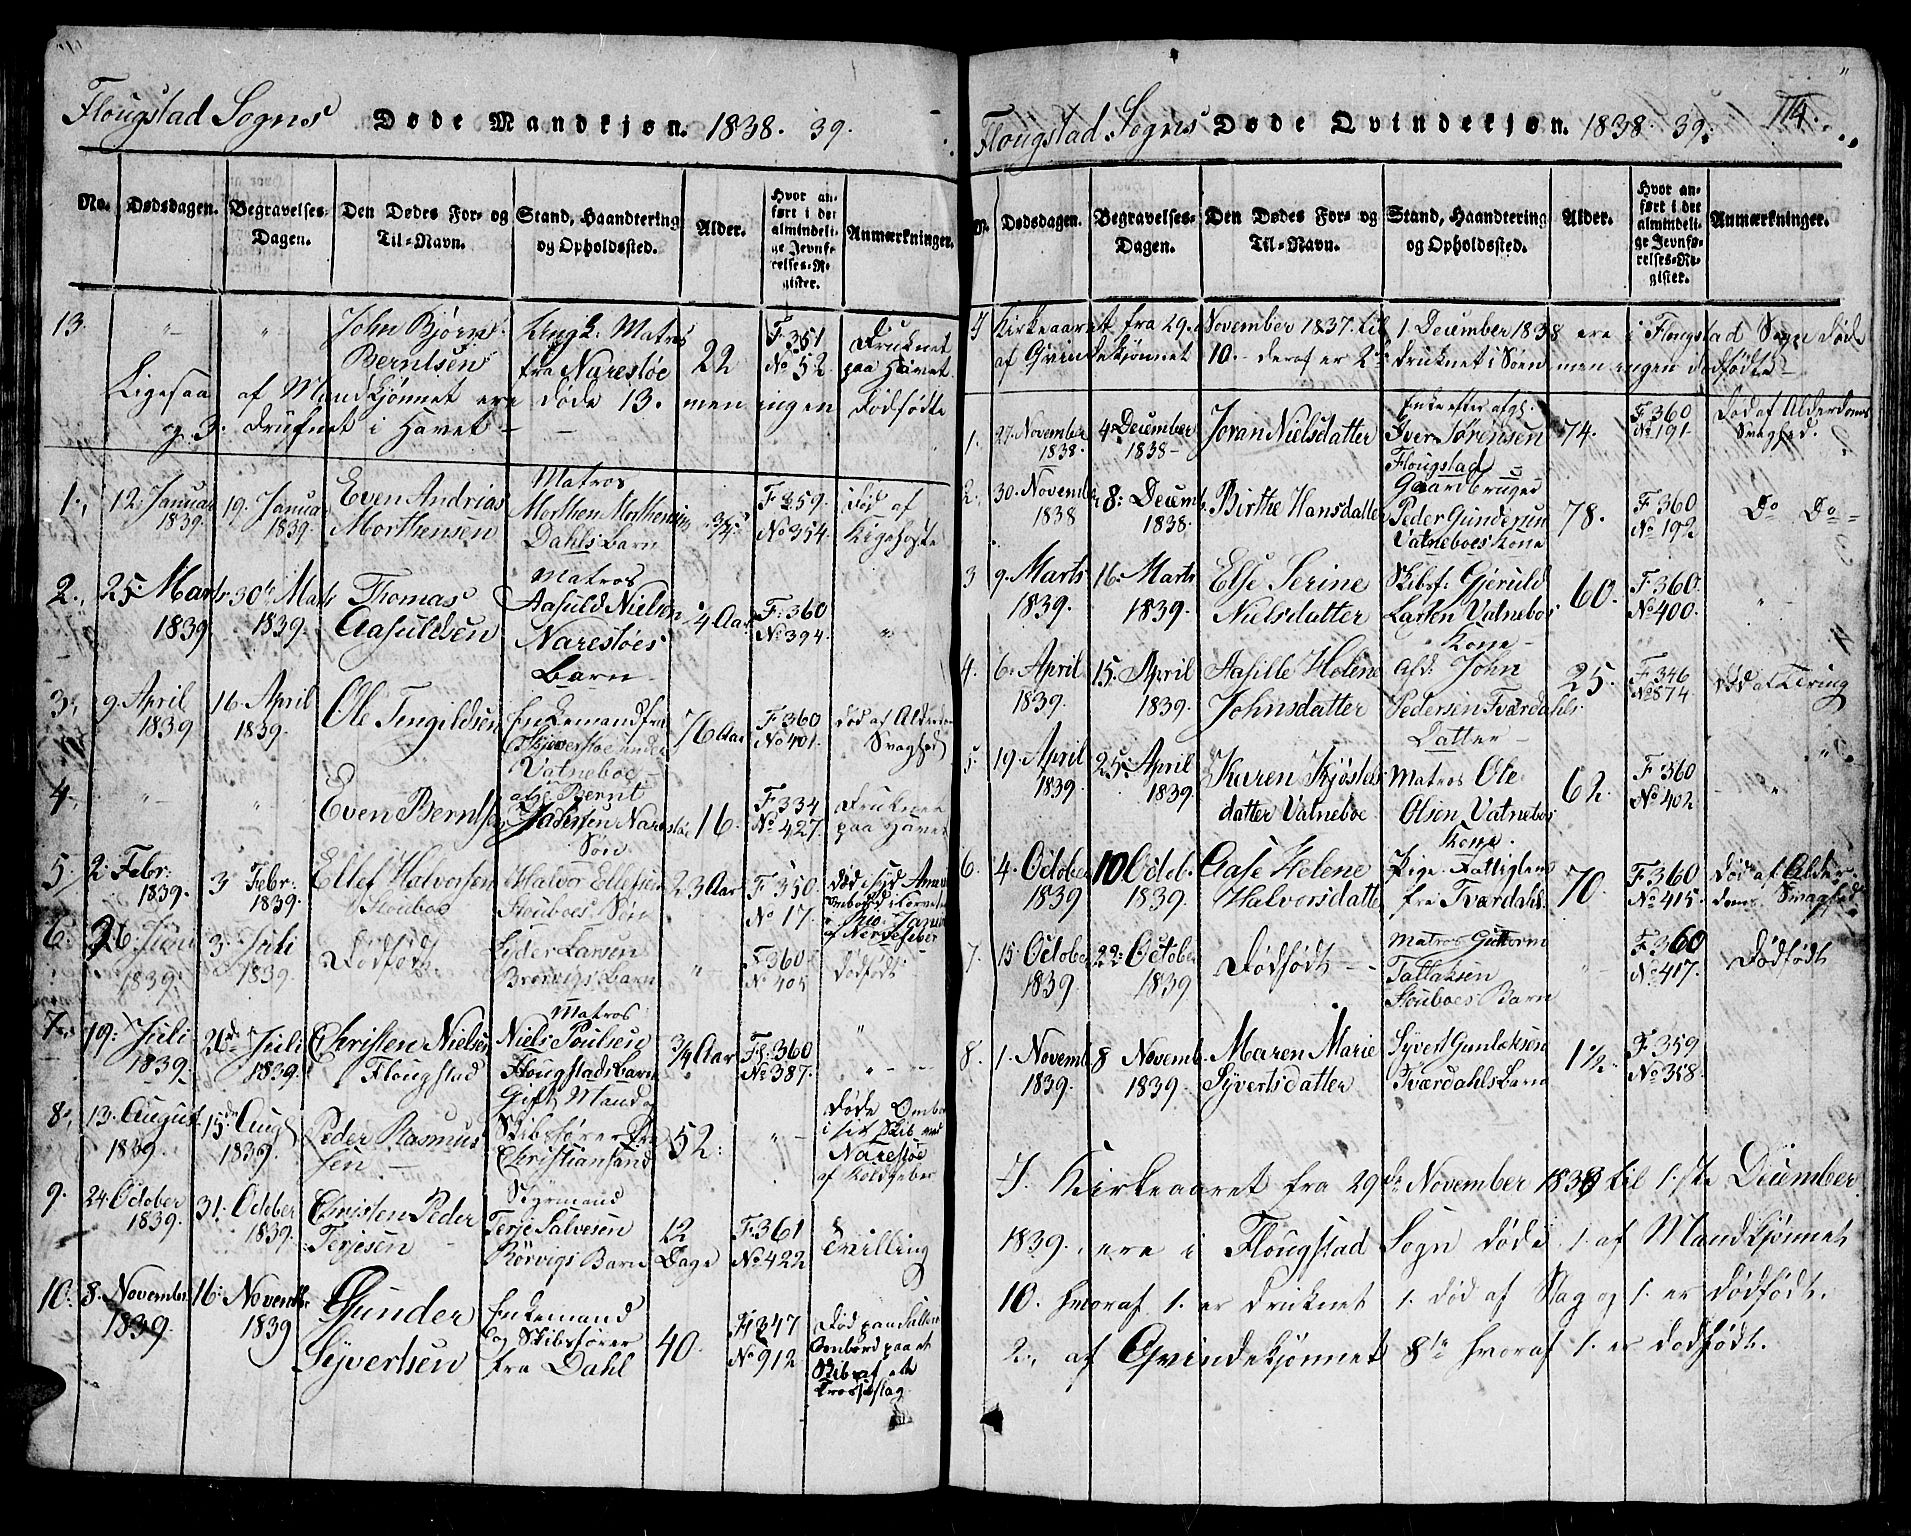 Flougstad Sogns Døde Mandkjøn. 1838. 39.
No.
Dødsdagen.
Begravelses-
Dagen.
Den Dødes For- og
Til-Navn.
Stand, Haandtering
og Opholdssted.
Alder.
Hvor an-
ført i det
almindeli-
ge Jevnfø-
relses-Re-
gister.
Anmærkninger.
13. " " John Bjørn Berntsen
fra Narestøe 22 F 351 No 52 Druknet paa Havet
Ligesaa af Mandkjønnet ere døde 13. men ingen Dødfødte
og 3. druknet i Havet
1. 12. Januar 1839. 19. Januar 1839. Even Andrias Morthensen
Matros Morthen Morthensen Dahls barn 3/4 F 359. No 354. død af Kigehoste
2. 25. Marts 1839 30te Marts 1839. Thomas Aasuldsen
Matros Aasuld Nielsen Narestøes Barn 4 Aar F. 360 No 394. "
3. 9. April 1839 16. April 1839. Ole Tengildsen
Enkemand fra under Vatneboe 76 Aar F. 360 No 401. død af Alderdoms Svaghed
4. " " Even Berntsen
afg. Bernt Narestøe Søn 16. F. 334 No 427. Druknet paa Havet
5. 2 Febr: 1839. 3 Febr: 1839. Ellef Halvorsen Stouboe
Halvor Ellefsen Stouboes Søn 23 Aar F 350. No 17. Død i Syd Ombord i Rio Janei af Nervefeber
6. 26 Juni 1839. 3. Juli 1839. Dødfødt
Peder Larsen Barn " F 360 No 405 Dødfødt.
7. 19. Juli 1839. Juli 1839. Christen Nielsen Flougstad
Matros Niels Poulsen Flougstads barn 3/4 Aar F. 360 No 387. "
8. 13. August 1839. 15de Aug 1839. Peder Rasmussen
Gift Mand og Skibsfører fra Christiansand 52. " Døde Ombord i sit Skib ved Narestøe af Koldfeber
9. 24 October 1839. 31. October 1839. Christen Peder Terjesen
Styrmand Terje Salvesen Rörvigs Barn 12 Dage F. 361 No 422 Tvilling
10. 8. Novembr 1839. 16. Novembr 1839 Gunder Syvertsen
Enkemand og Skibsfører fra Dahl 40. F 347 No 912 Død paa Ombord paa et Skib af
Flougstad Sogns Døde Qvindekjøn. 1838. 39. 114.
No.
Dødsdagen.
Begravelses-
Dagen.
Den Dødes For- og
Til-Navn.
Stand, Haandtering
og Opholdssted.
Alder.
Hvor an-
ført i det
almindeli-
ge Jevnfø-
relses-Re-
gister.
Anmærkninger.
I Kirkeaaret fra 29. November 1837. til 1. December 1838 ere i Flougstad Sogn døde
af Qvindekjønnet 10. deraf er 2 druknet i Søen men ingen dødfødte
1. 27. November 1838. 4 December 1838 Joran Nielsdatter
Enke efter afg. Iver Sørensen Flougstad 74. F 360 No 191. Død af Alderdoms Svaghed.
2. 30. November 1838 8. December 1838. Birthe Hansdatter
Gaardbruger Peder Gundersen Vatneboes Kone 78. F 360 No 192 Do Do
3 9. Marts 1839. 16. Marts 1839. Else Serine Nielsdatter
Skibsf. Gjeruld Larsen Vatneboe Kone 60. F. 360. No 400. "
4. 6. April 1839. 15. April 1839. Aasille Helene Johnsdatter
afd. John Pedersen Tværdahls Datter 25. F 346 No 874 død af Tæring
5. 19. April 1839. 25. April 1839. Karen Kjøstels datter Vatneboe
Matros Ole Olsen Vatneboe Kone. 62. F 360 No 402. "
6. 4. October 1839 10 Octob. 1839. Aase Helene Halvorsdatter
Pige. Fattiglem fra Tværdahl 70. F. 360 No 415. Død af Alderdoms Svaghed
7. 15. October 1839. 22. October 1839 Dødfødt
Matros Guttorm Tallaksen Stouboes Barn " F. 360 No 417. Dødfødt
8. 1. Novemb 1839. 8 Novemb. 1839. Maren Marie Syvertsdatter
Syvert Gunlaksen Tværdahls barn 1 1/2. F. 359 No 358.
I. Kirkeaaret fra 29de November 1838 til 1ste December
1839. ere i Flougstad Sogn døde 1. af Mandkjønnet
10. hvoraf 1. er druknet 1. død af Slag og 1. er dødfødt.
2. af Qvindekjønnet 8te hvoraf 1. er dødfødt.